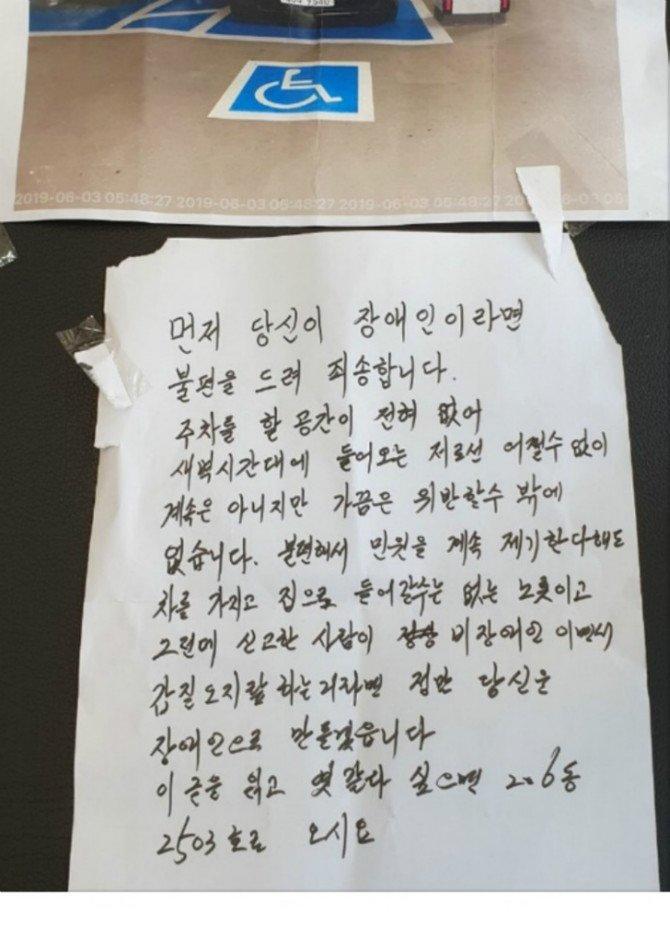 2019-06-03 05:48:27 2019-06-03 05:48:27 2019-06-03 05:48:27 2019-06-03 05:48:27 20
먼저 당신이 장애인이라면
불편을 드려 죄송합니다.
주차를 할 공간이 전혀 없어
새벽시간대에 들어오는 저로선 어쩔수 없이
계속은 아니지만 가끔은 위반할수 밖에
없습니다. 불편해서 민원을 계속 제기한다해도
차를 가지고 집으로 들어갈수는 없는 노릇이고
그런데 신고한 사람이 비장애인 이면서
갑질 오지랖 하는거라면 정말 당신은
장애인으로 만들겠습니다
이 글을 읽고 엿 같다 싶으면 206동
2503호로 오시요